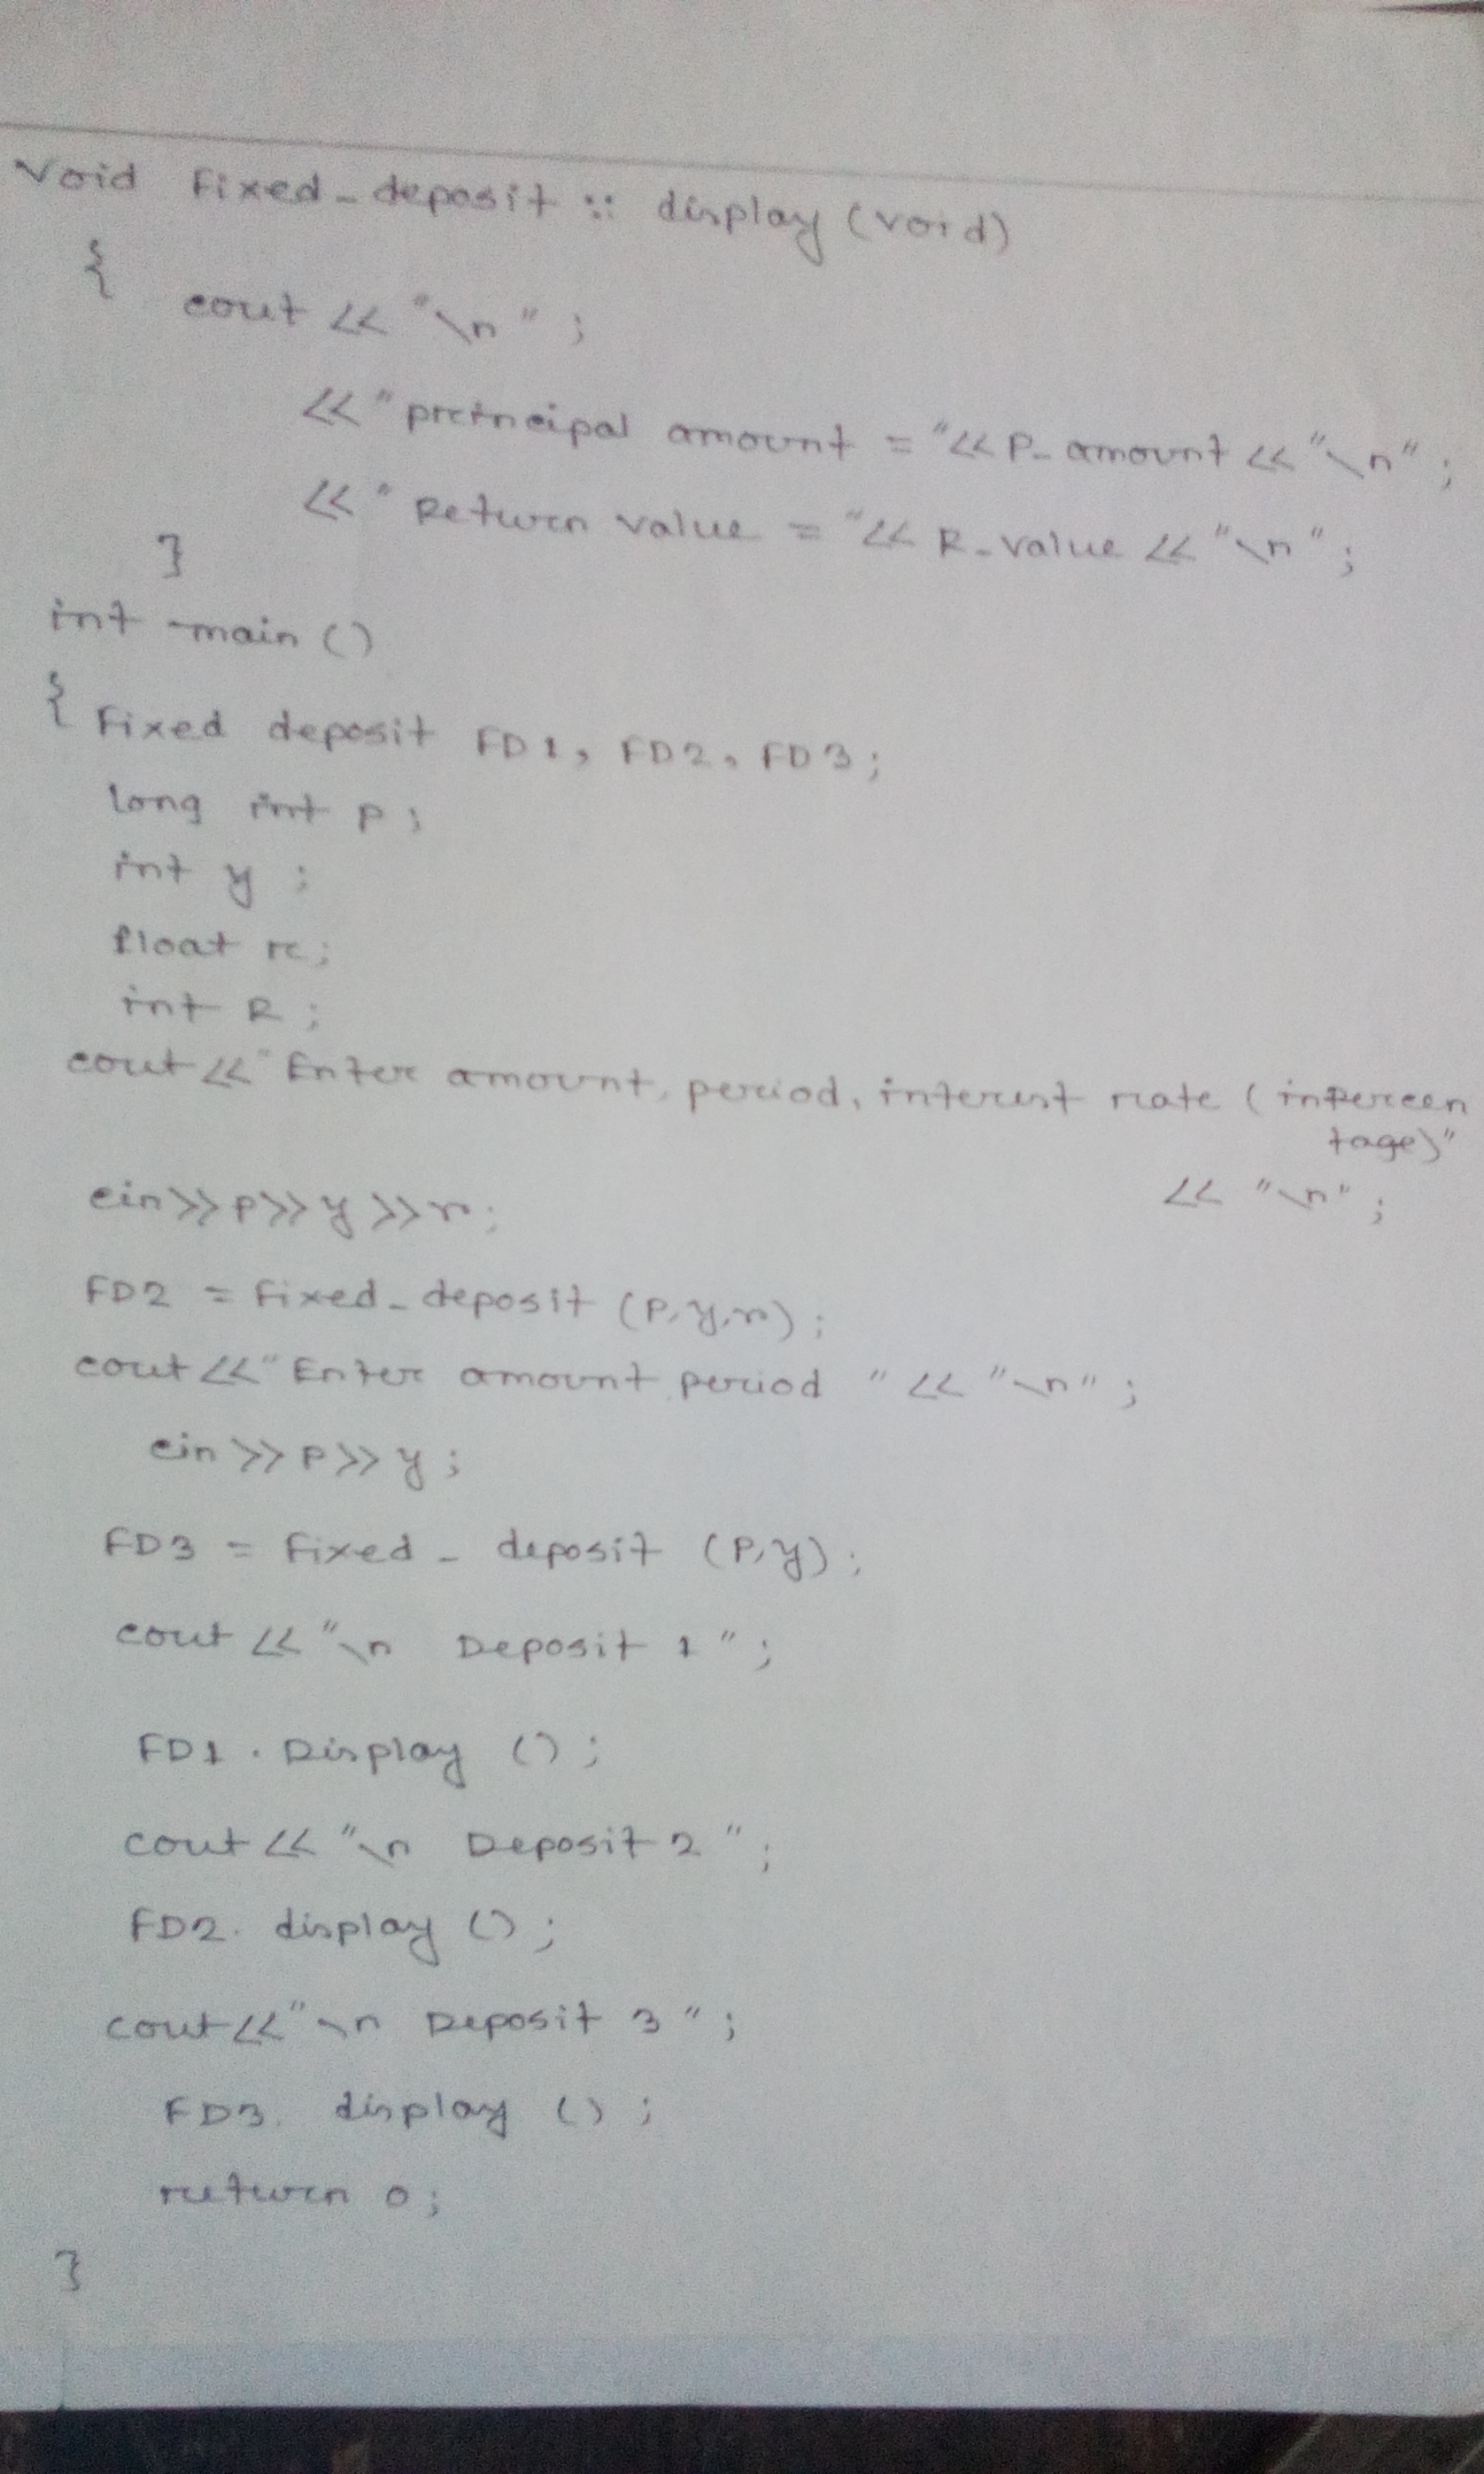 Void Fixed_deposit :: display (void)
{
cout << "\n" ;
<< "principal amount = "<< P_amount << "\n" ;
<< " Return value = "<< R_value << "\n" ;
}
int main ()
{ Fixed deposit FD1, FD2, FD3;
long int p ;
int y ;
float r;
int R ;
cout << "Enter amount, period, interest rate ( inPercen
tage)"
<< "\n" ;
cin>>p>>y>>r;
FD2 = Fixed_deposit (P,y,r) ;
cout << "Enter amount period " << "\n" ;
cin >> p >> y ;
FD3 = Fixed _ deposit (P,y) ;
cout << "\n Deposit 1 " ;
FD1 . Display () ;
cout << "\n Deposit 2 " ;
FD2. display () ;
cout << "\n Deposit 3 " ;
FD3. display () ;
return 0 ;
}